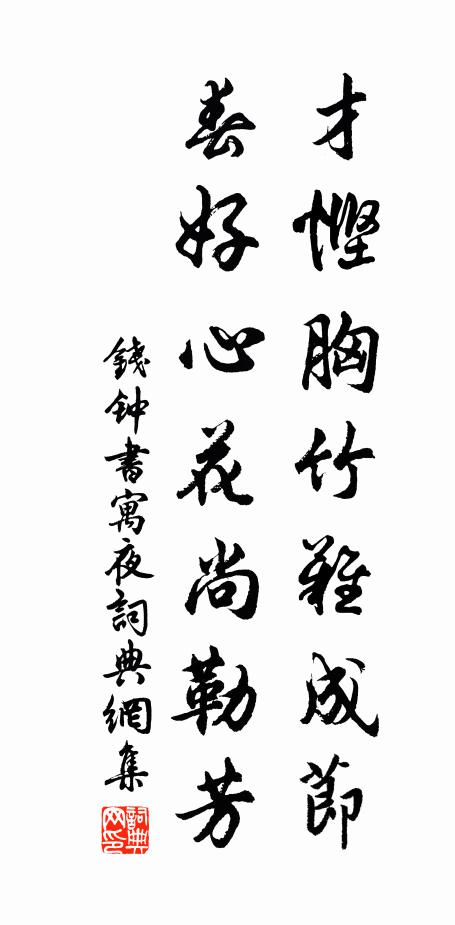 才慳胸竹難成節
春好心花尚勒芳
錢钟書寓夜詞典網集
詞典網印